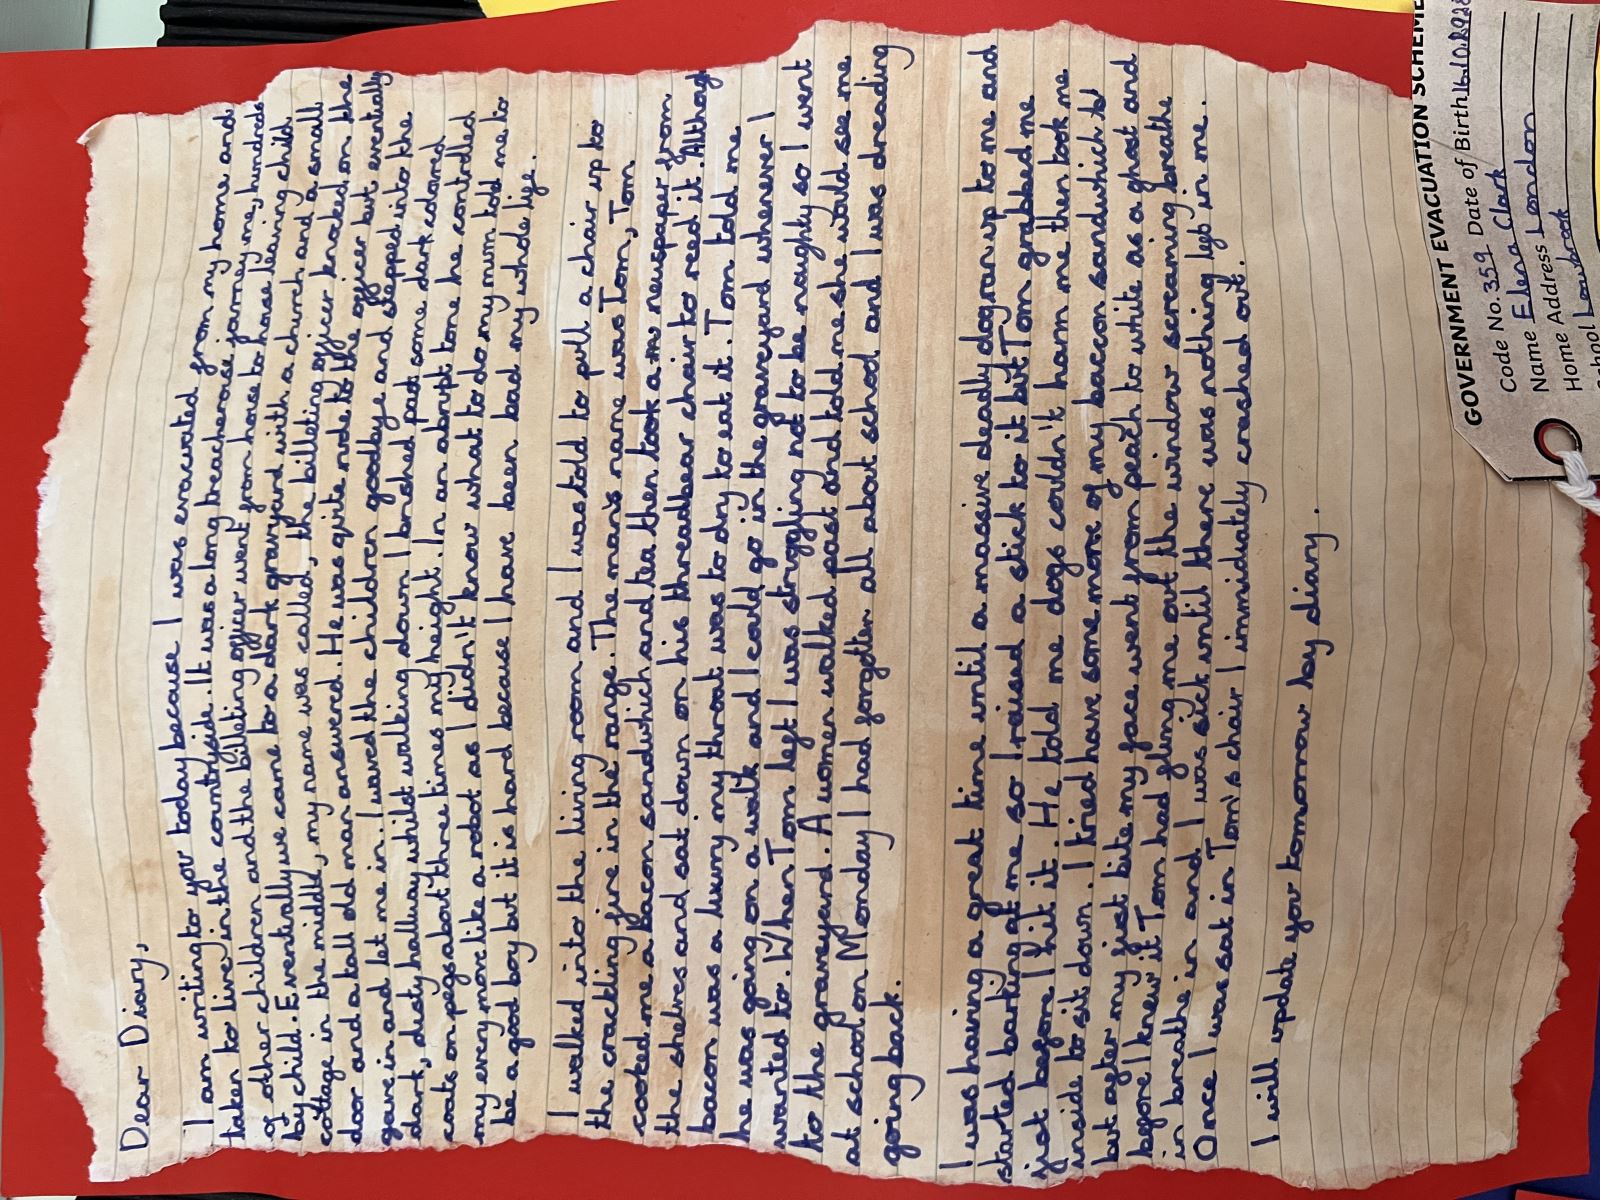 Dear Diary,
I am writing to you today because I was evacuated from my home and
taken to live in the countryside. It was a long treacherous journey me, hundreds
of other children and the billeting officer went from house to house leaving child
by child. Eventually we came to a dark graveyard with a church and a small
cottage in the middle, my name was called, the billeting officer knocked on the
door and a tall old man answered. He was quite rude to the officer but eventually
gave in and let me in. I waved the children goodbye and stepped into the
dark, dusty hallway whilst walking down I brushed past some dark colored
coats on pegs about three times my height. In an abrupt tone he controlled
my every move like a robot as I didn't know what to do my mum told me to
be a good boy but it is hard because I have been bad my whole life.
I walked into the living room and I was told to pull a chair up to
the crackling fire in the range. The man's name was Tom, Tom
cooked me a Bacon sandwhich and tea then took a newspaper from
the shelves and sat down on his threadbear chair to reed it. Although
bacon was a luxury my throat was to dry to eat it. Tom told me
he was going on a walk and I could go in the graveyard whenever I
wanted to. When Tom left I was struggling not to be naughty so I went
to the graveyard. A women walked past and told me she would see me
at school on Monday I had forgotten all about school and I was dreading
going back.
I was having a great time until a massive deadly dog ran up to me and
started barking at me so I raised a stick to it but Tom grabbed me
just before I hit it. He told me dogs couldn't harm me then took me
inside to sit down. I tried have some more of my baccon sandwhich
but after my fist bite my face went from peach to white as a ghost and
before I knew it Tom had fling me out the window screaming breathe
in breathe in and I was sick until there was nothing left in me.
Once I was sat in Tom's chair I immidiately crashed out.
I will update you tomorrow by diary.
GOVERNMENT EVACUATION SCHEME
Code No. 359 Date of Birth 16.10.
Name Elena Clark
Home Address London
School Lowbrook